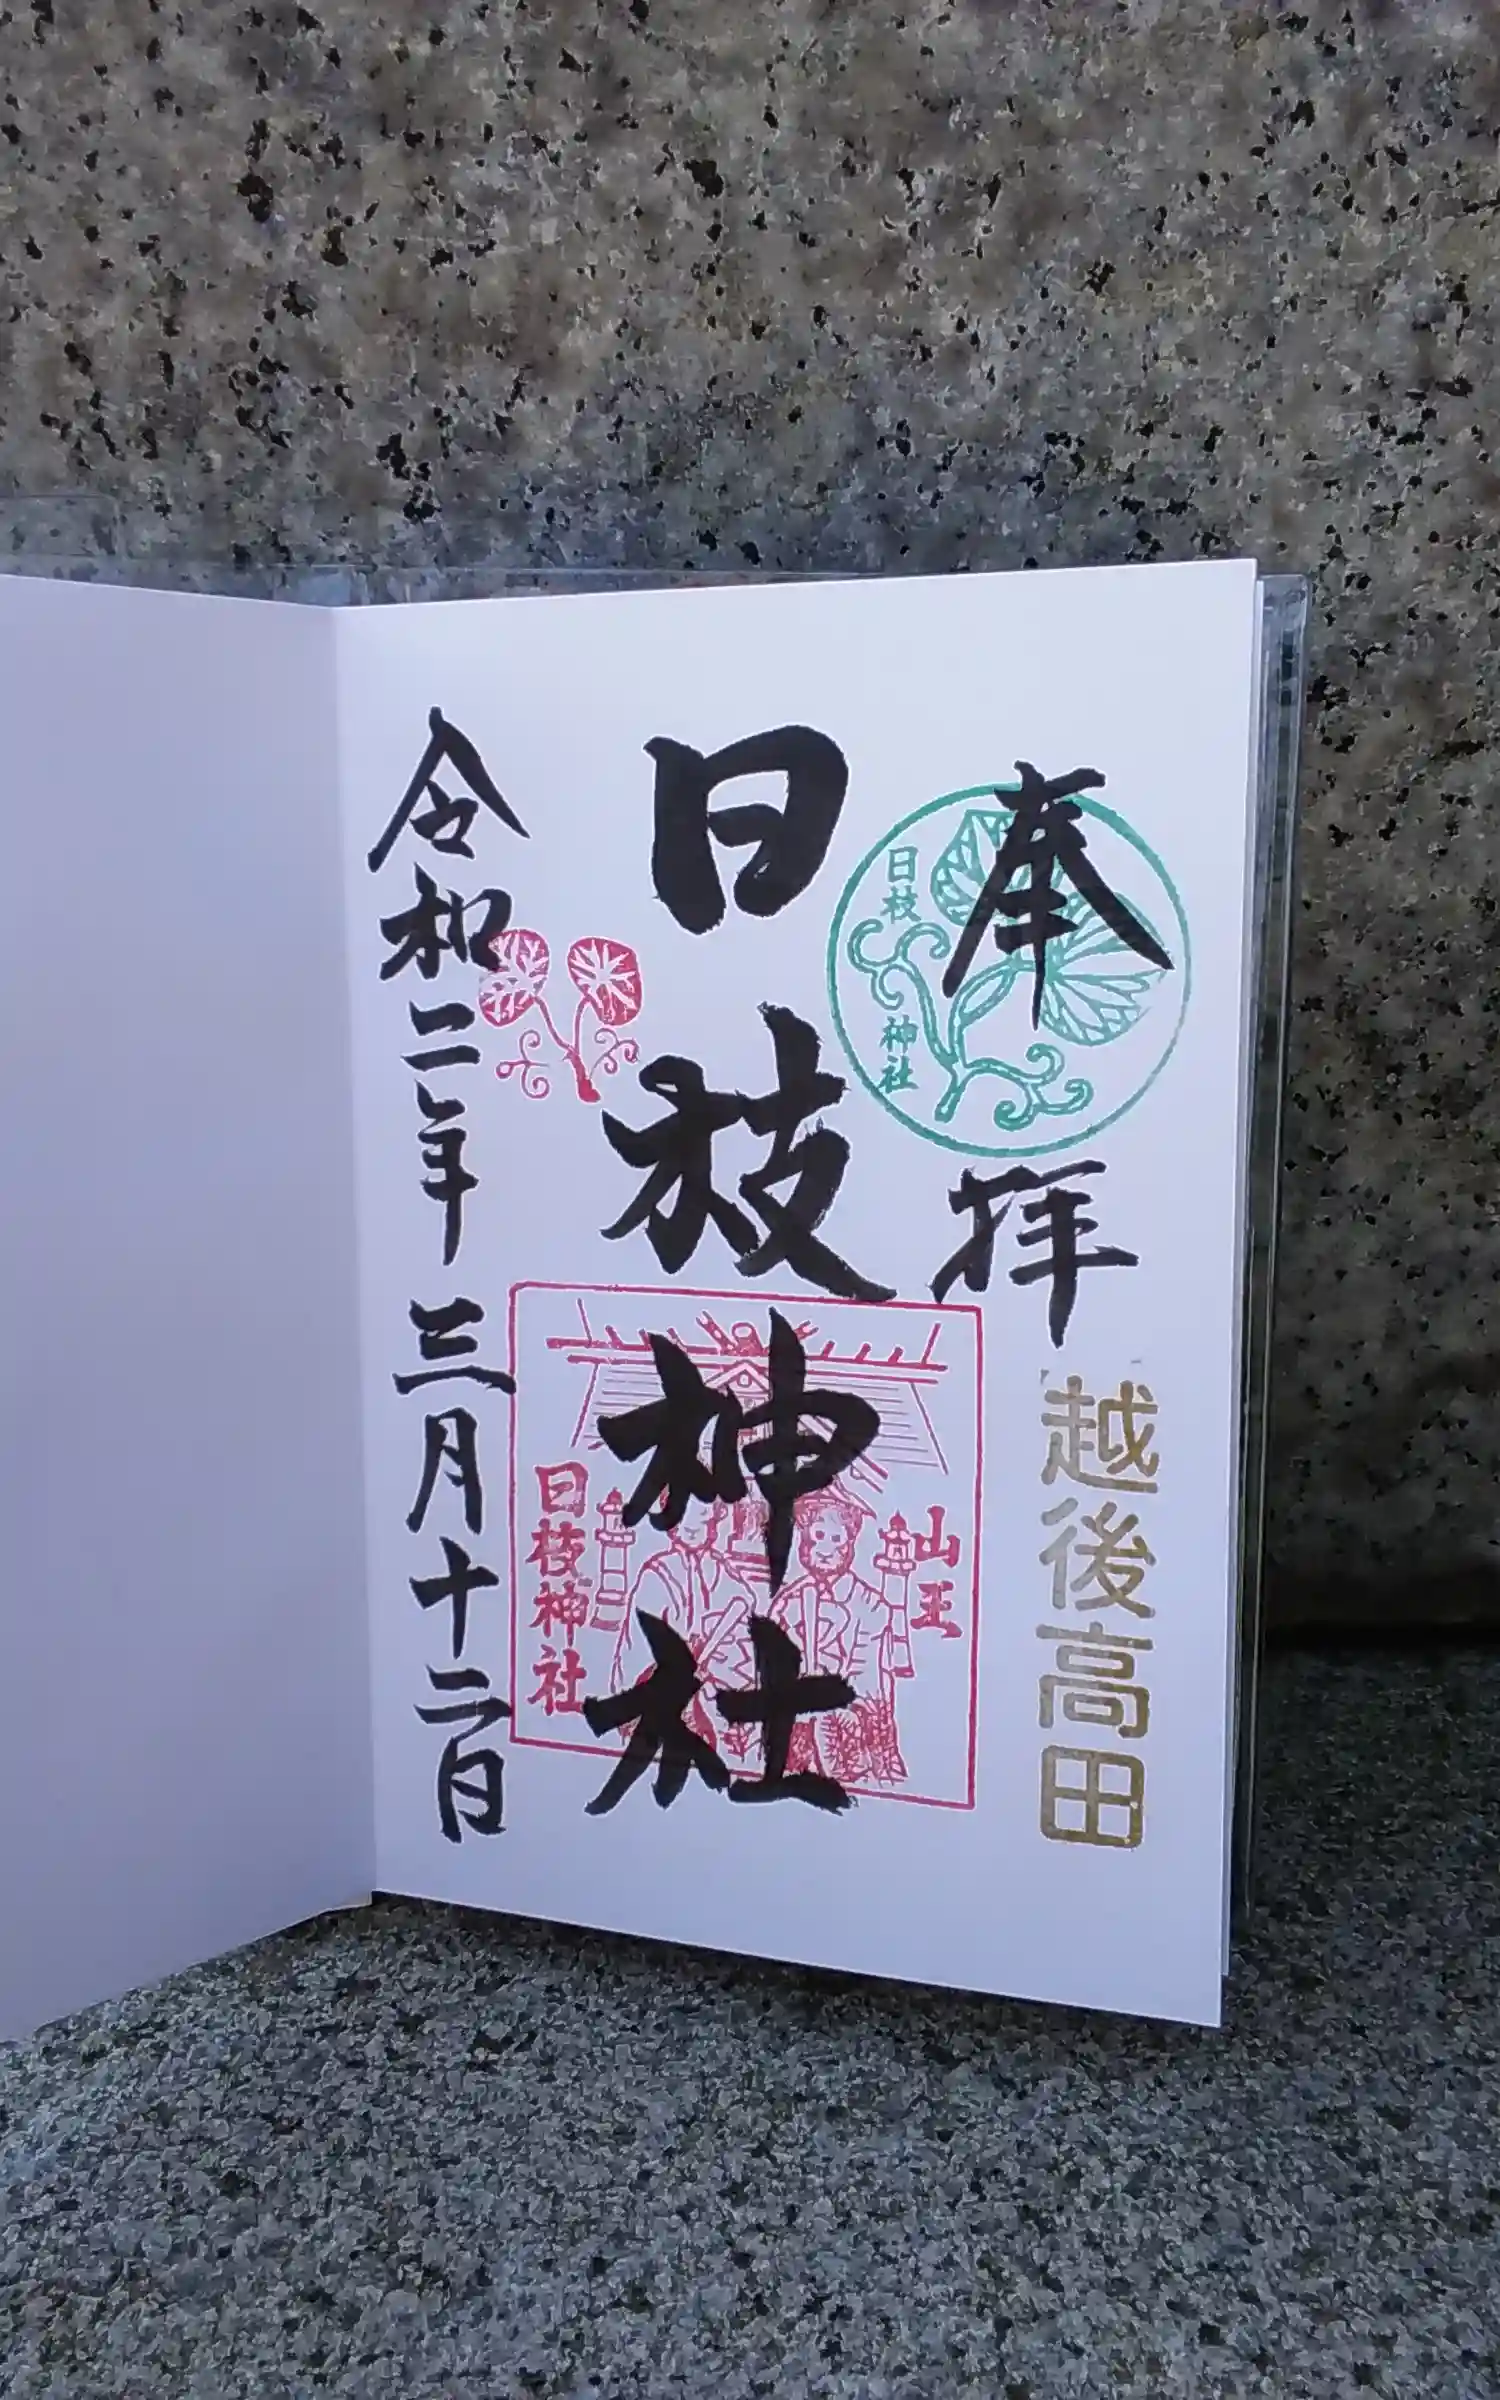 奉拝
越後高田
日枝神社
山王
日枝神社
日枝神社
令和二年三月十二日